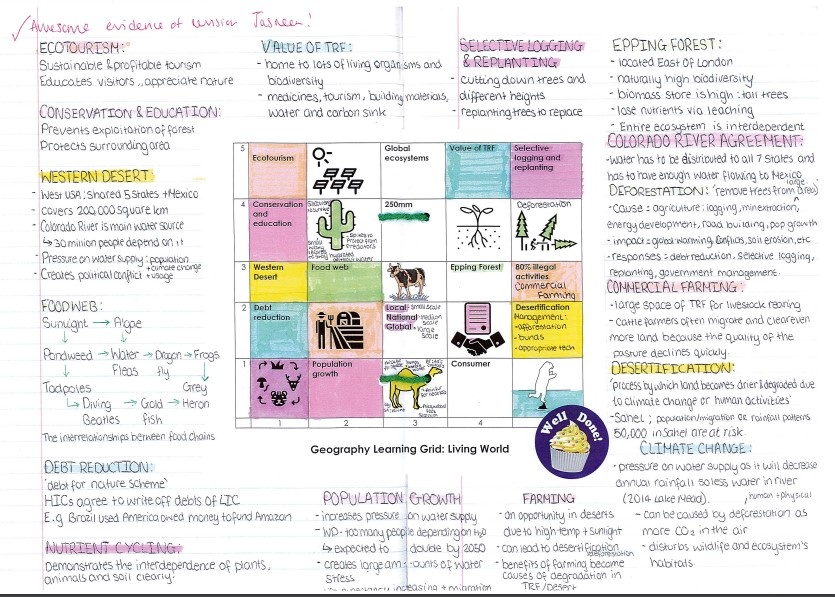 ✓ Awesome evidence of revision Tasneem!
ECOTOURISM:
Sustainable & profitable tourism
Educates visitors, appreciate nature
CONSERVATION & EDUCATION:
Prevents exploitation of forest
Protects surrounding area
WESTERN DESERT:
- West USA; shared 5 states + Mexico
- covers 200,000 square km
- Colorado River is main water source
↳ 30 million people depend on it
- Pressure on water supply: population
+ climate change
- Creates political conflict + usage
FOOD WEB:
Sunlight → Algae
Pondweed → Water → Dragon → Frogs
Fleas fly
Tadpoles Grey
↳ Diving → Gold → Heron
Beatles fish
The interrelationships between food chains
DEBT REDUCTION:
'debt for nature scheme'
HICs agree to write off debts of LIC
E.g Brazil used America owed money to fund Amazon
NUTRIENT CYCLING:
Demonstrates the interdependence of plants,
animals and soil clearly.
VALUE OF TRF:
- home to lots of living organisms and
biodiversity
- medicines, tourism, building materials,
water and carbon sink
SELECTIVE LOGGING
& REPLANTING
- cutting down trees and
different heights
- replanting trees to replace
EPPING FOREST:
- located East of London
- naturally high biodiversity
- biomass store is high: tall trees
- lose nutrients via leaching
- Entire ecosystem is interdependent
COLORADO RIVER AGREEMENT:
- Water has to be distributed to all 7 states and
has to have enough water flowing to Mexico
DEFORESTATION: 'remove trees from large area'
- cause = agriculture: logging, min extraction,
energy development, road building, pop growth
- impact = global warming, conflicts, soil erosion, etc
- responses = debt reduction, selective logging,
replanting, government management.
COMMERCIAL FARMING:
- large space of TRF for livestock rearing
- cattle farmers often migrate and clear even
more land because the quality of the
pasture declines quickly.
DESERTIFICATION:
'process by which land becomes drier & degraded due
to climate change or human activities'
- Sahel; population/migration or rainfall patterns
50,000 in Sahel are at risk.
CLIMATE CHANGE:
- pressure on water supply as it will decrease
annual rainfall so less water in river
(2014 Lake Mead). , human + physical
- can be caused by deforestation as
more CO2 in the air
- disturbs wildlife and ecosystem's
habitats.
5
Ecotourism
Global
ecosystems
Value of TRF
Selective
logging and
replanting
4
Conservation
and
education
250mm
Deforestation
3
Western
Desert
Food web
Epping Forest
80% illegal
activities
Commercial
Farming
2
Debt
reduction
Local = small scale
National = medium scale
Global = large scale
Desertification
Management:
- afforestation
- bunds
- appropriate tech
1
Population
growth
Consumer
1 2 3 4 5
Geography Learning Grid: Living World
Well Done!
POPULATION GROWTH
- increases pressure on water supply
- WD - too many people depending on H2O
↳ expected to double by 2050
- creates large amounts of water
stress
FARMING
- an opportunity in deserts
due to high temp + sunlight
- can lead to desertification
/deforestation
- benefits of farming become
causes of degradation in
TRF/Desert